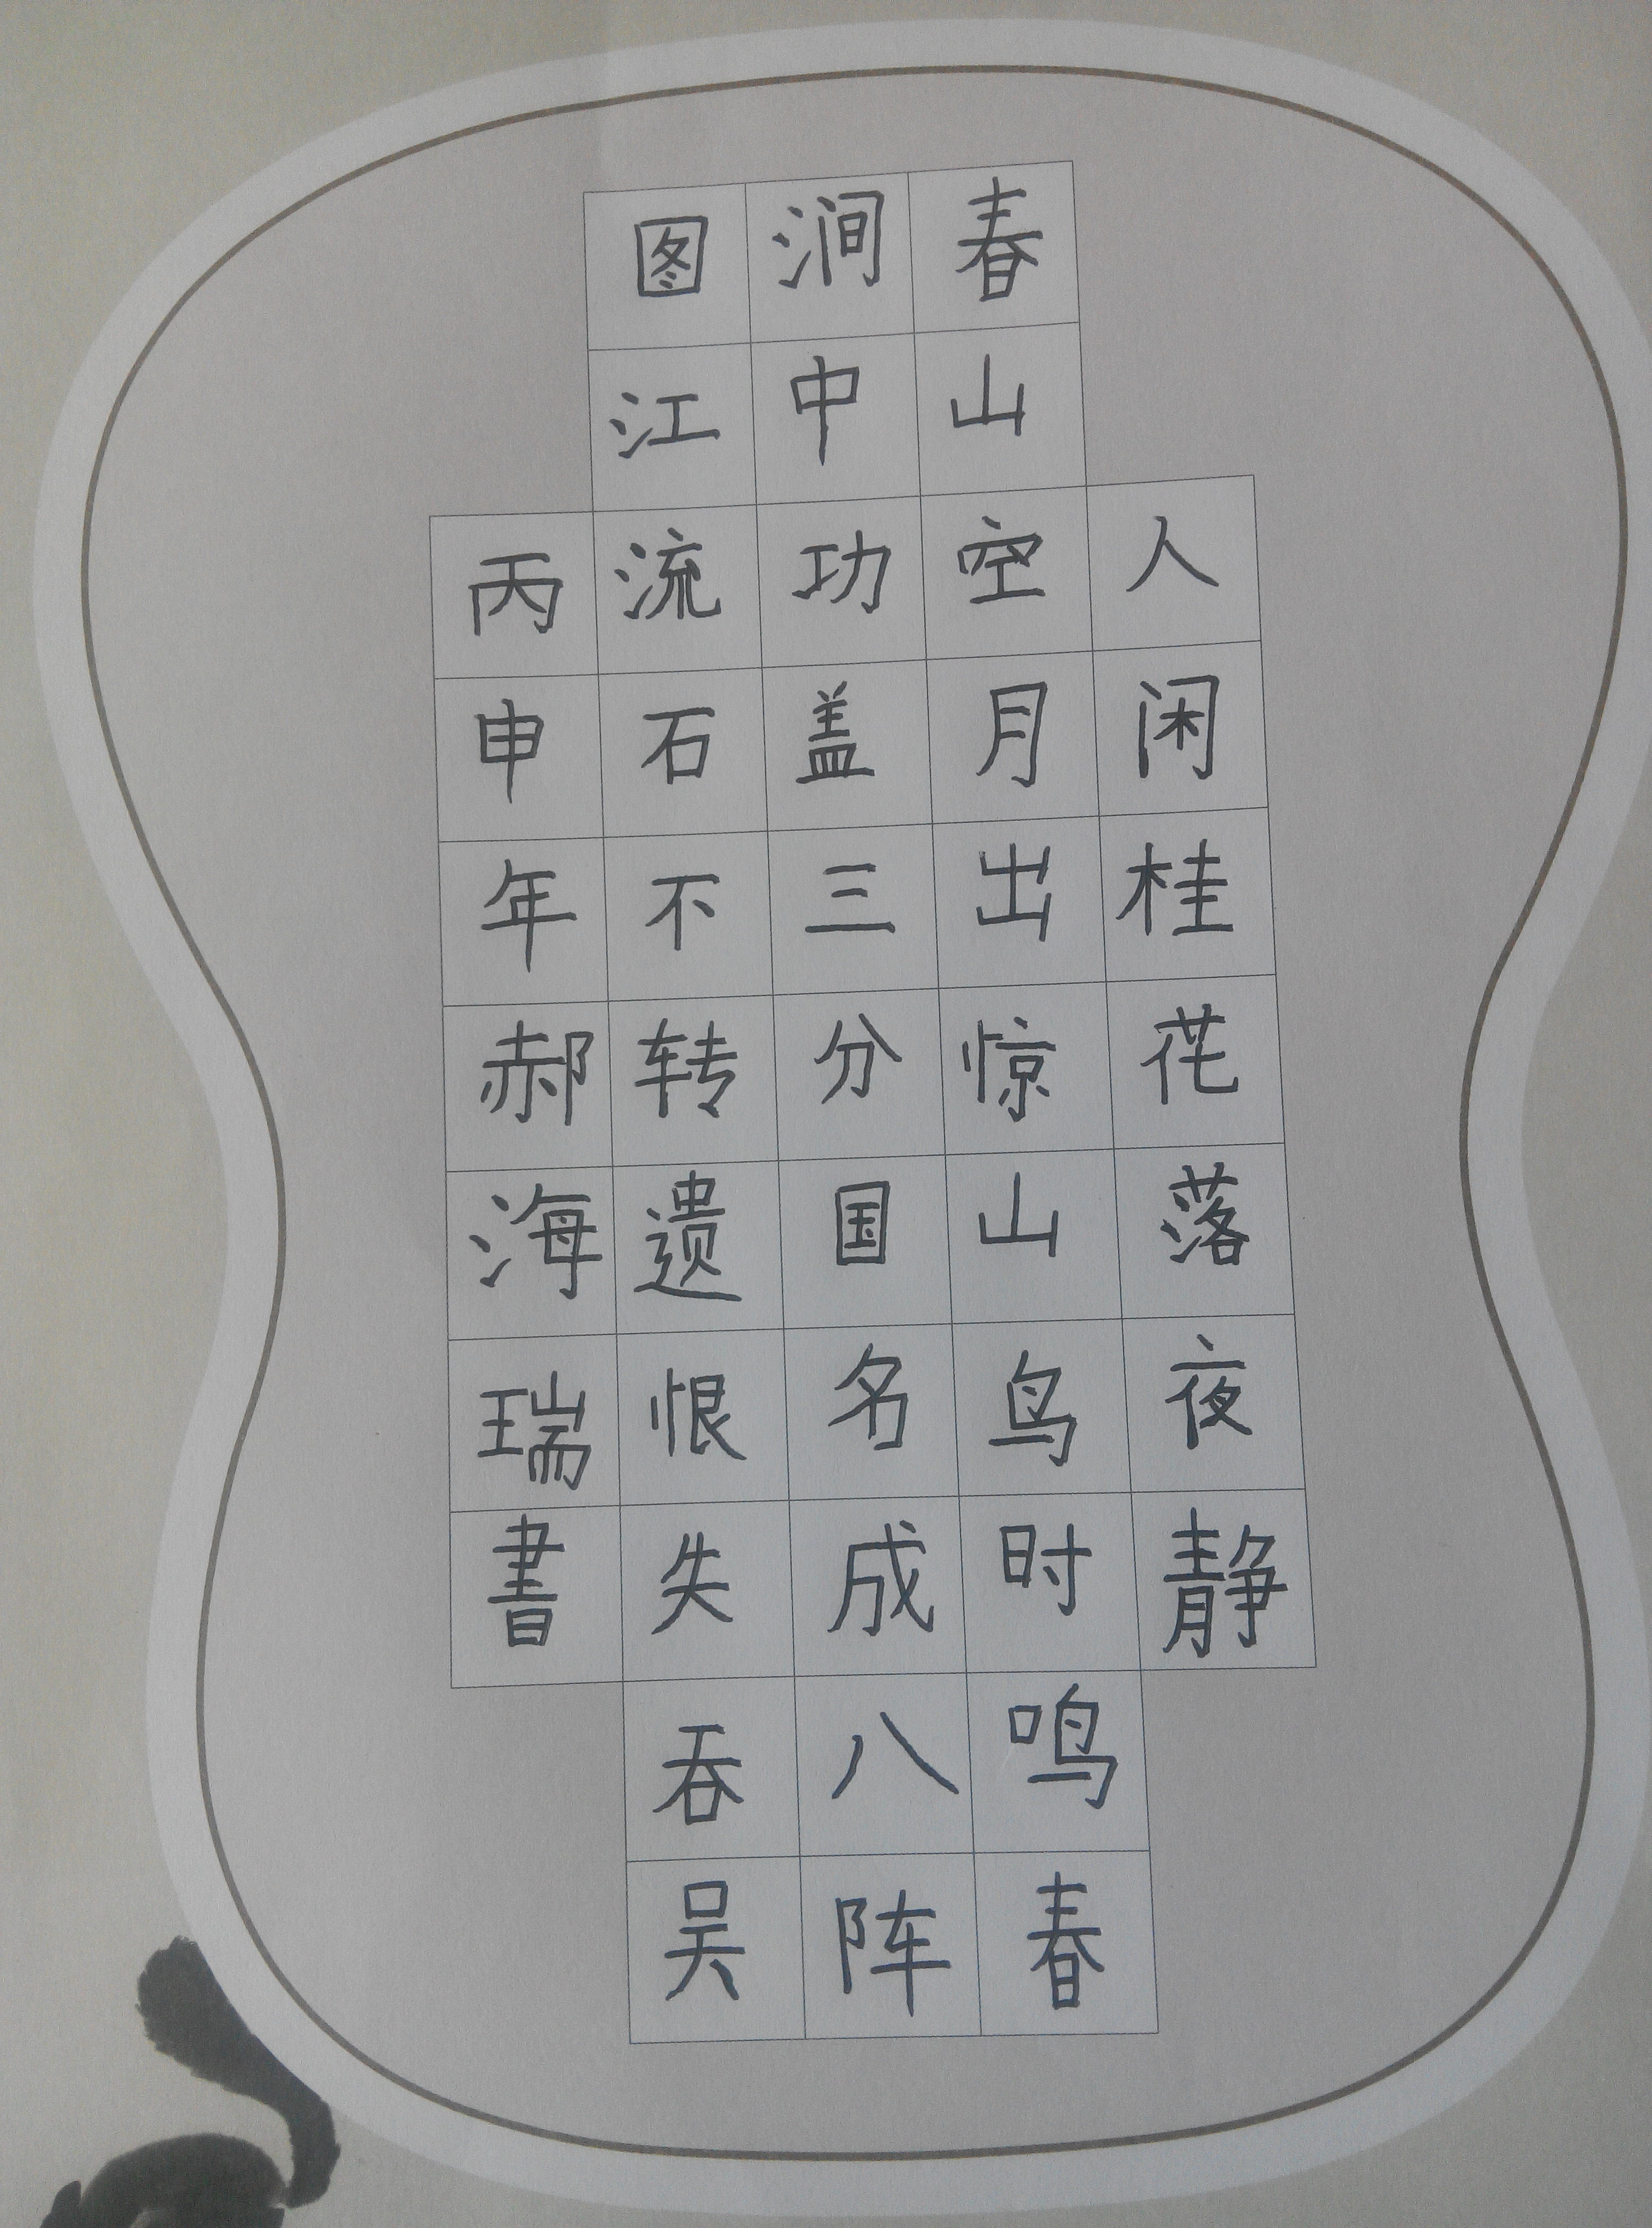 人闲桂花落夜静
春山空月出惊山鸟时鸣春
涧中功盖三分国名成八阵
图江流石不转遗恨失吞吴
丙申年郝海瑞書